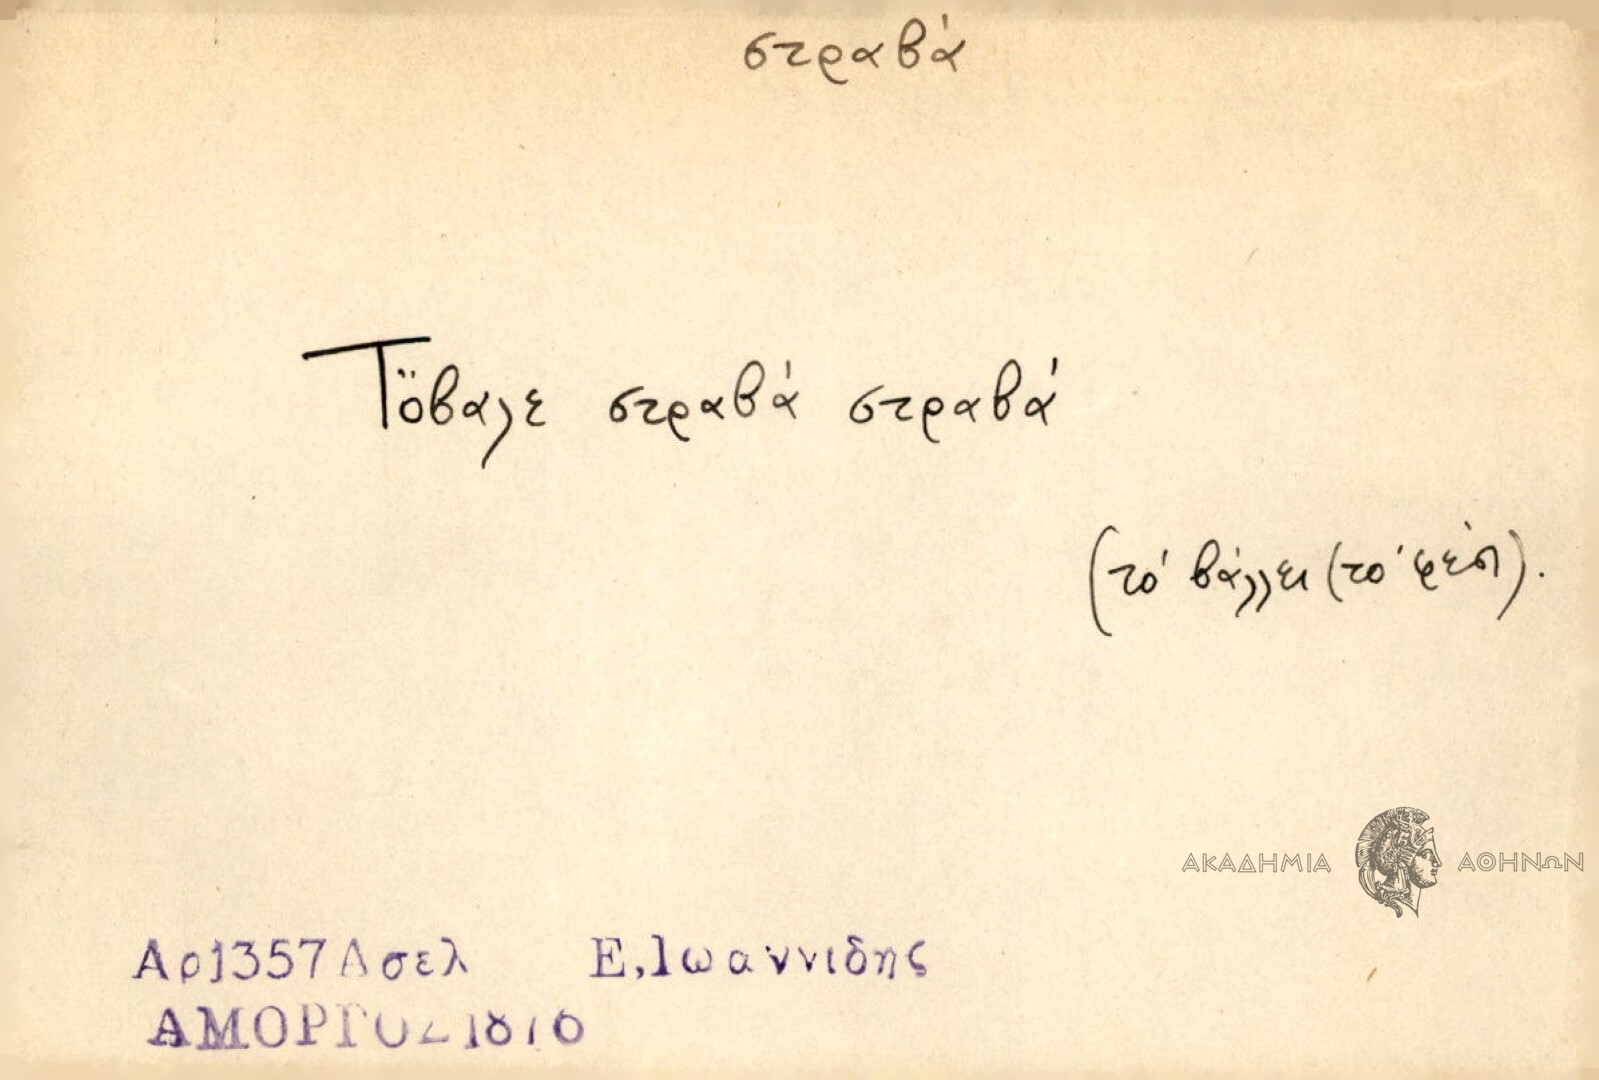 στραβά
Τὄβαλε στραβά στραβά
(τό βάλλει (τό φέσι).
ΑΚΑΔΗΜΙΑ ΑΘΗΝΩΝ
Αρ1357Ασελ Ε,Ιωαννιδης
ΑΜΟΡΓΟΣ1876